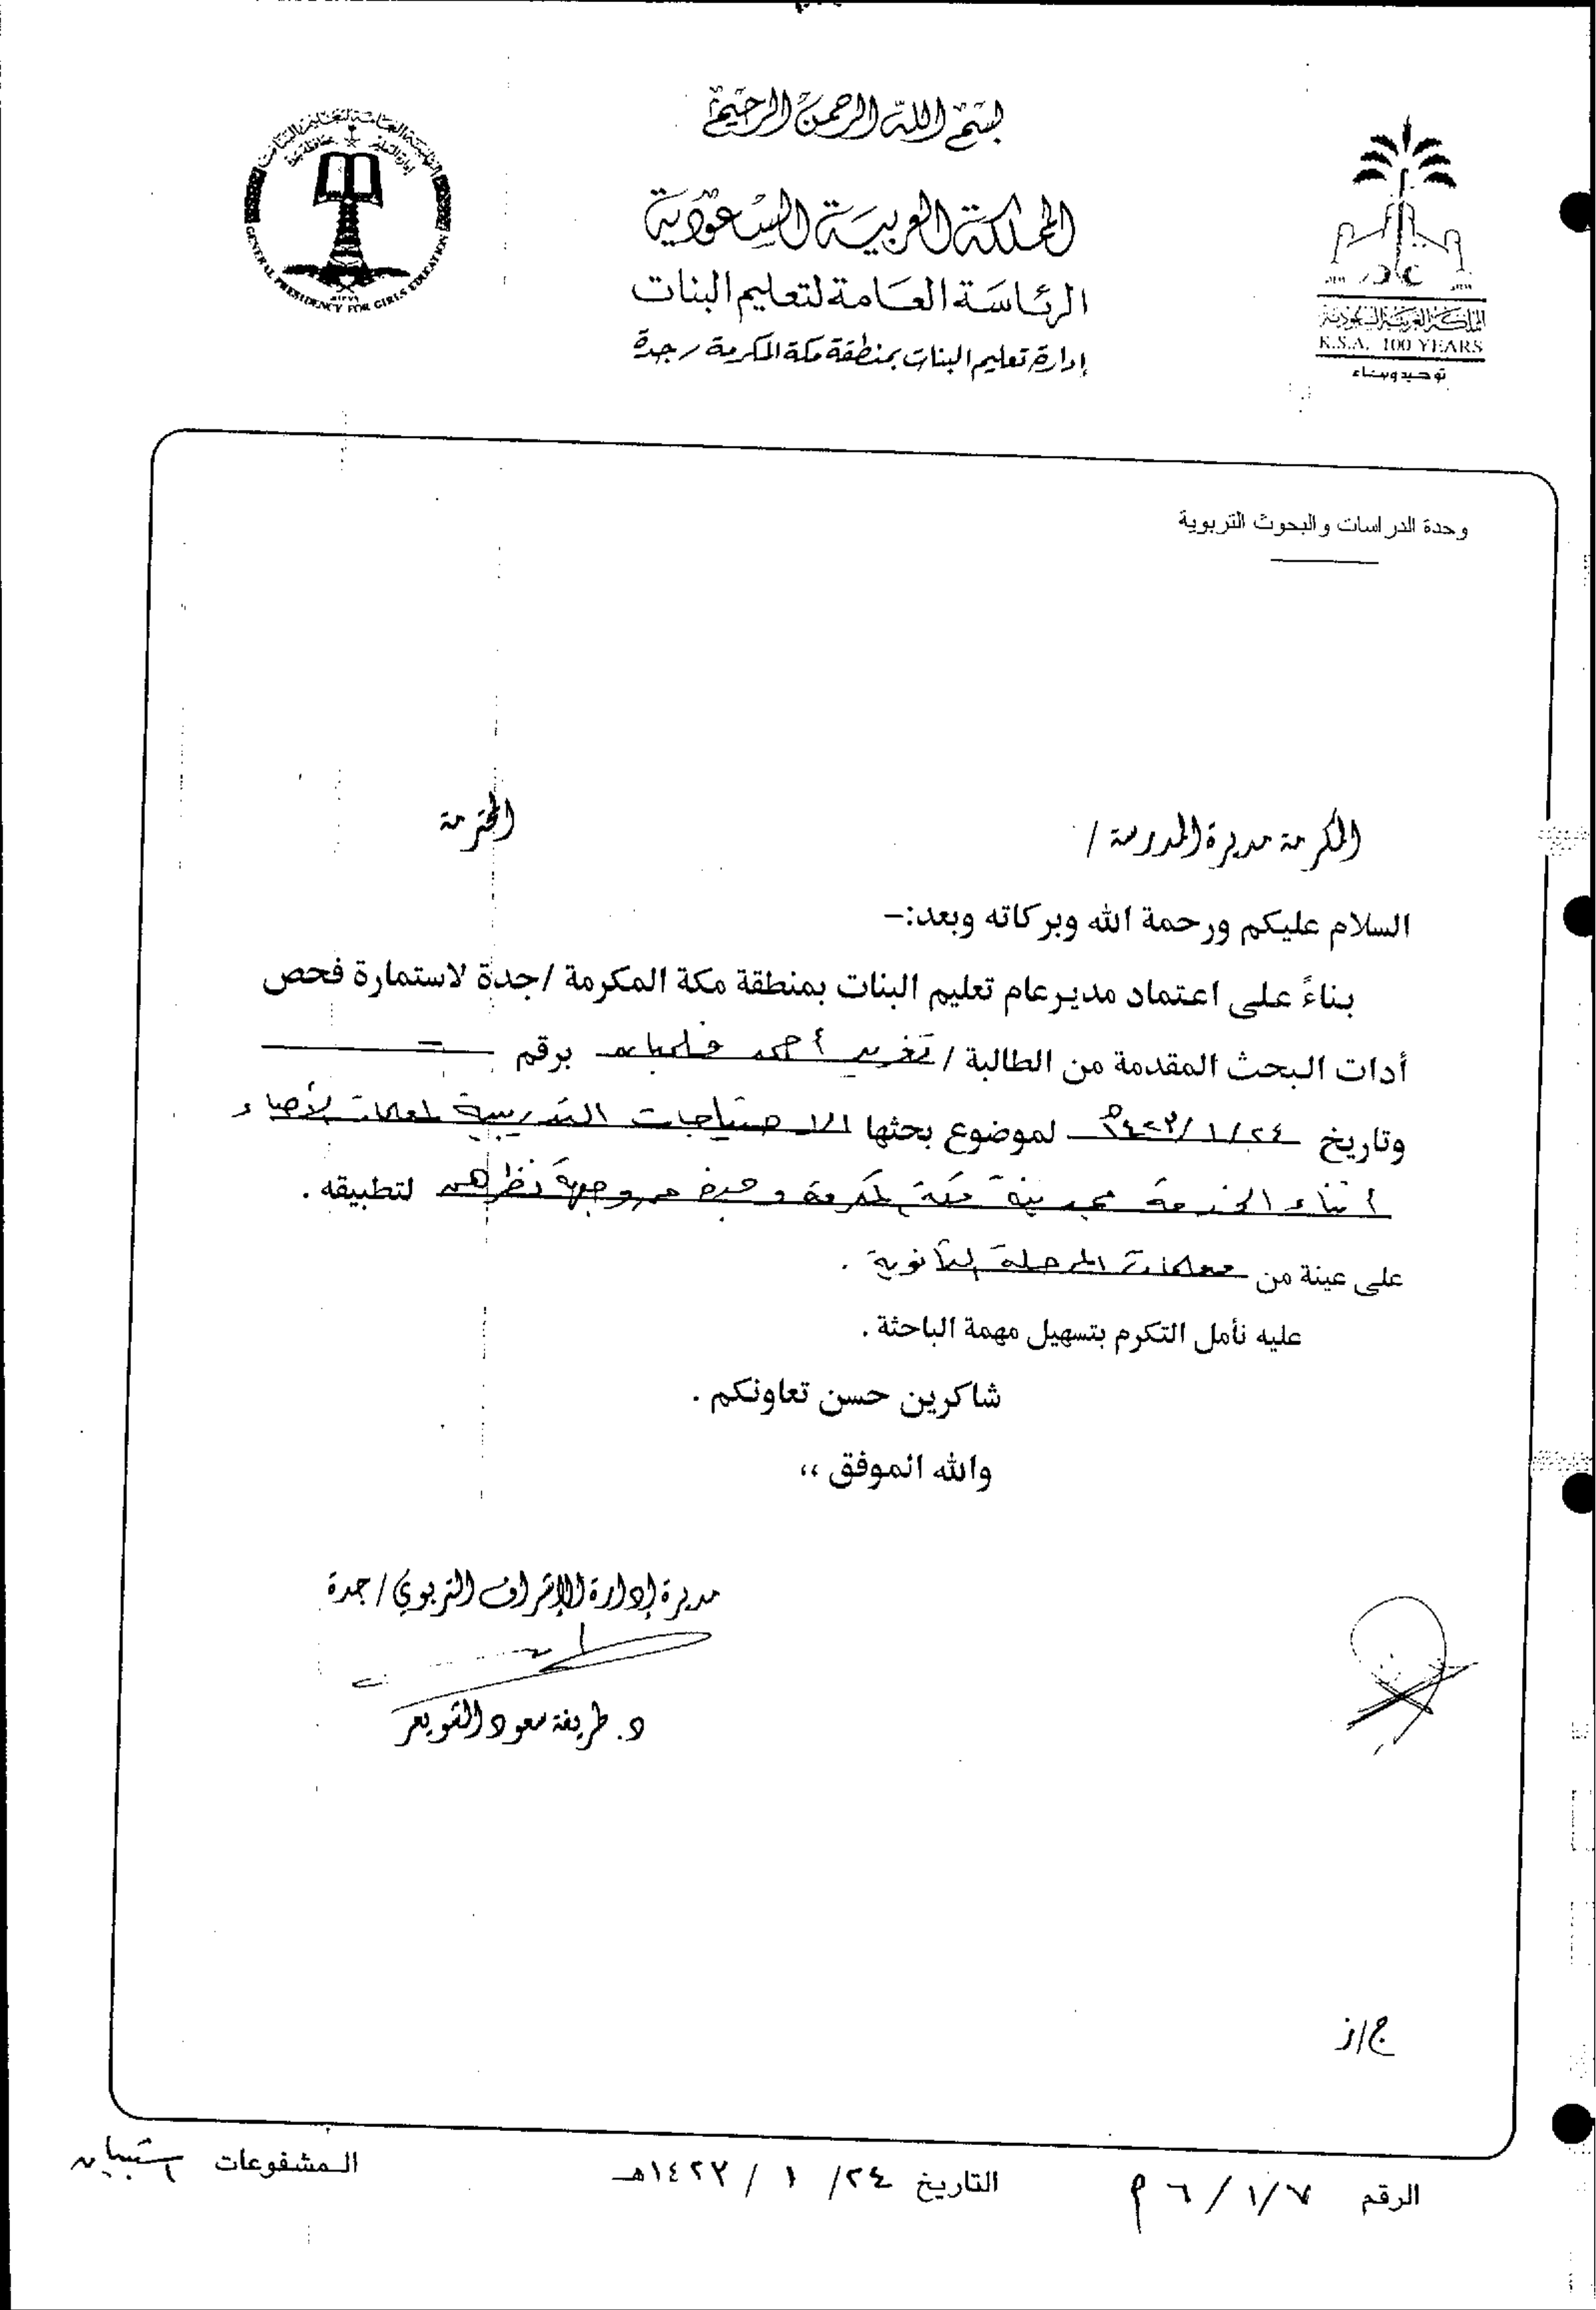 بسم الله الرحمن الرحيم
المملكة العربية السعودية
الرئاسة العامة لتعليم البنات
إدارة تعليم البنات بمنطقة مكة المكرمة / جدة
GENERAL PRESIDENCY FOR GIRLS EDUCATION
المملكة العربية السعودية
K.S.A. 100 YEARS
توحيد وبناء
وحدة الدراسات والبحوث التربوية
المكرمة مديرة المدرسة / المحترمة
السلام عليكم ورحمة الله وبركاته وبعد:-
بناءً على اعتماد مدير عام تعليم البنات بمنطقة مكة المكرمة /جدة لاستمارة فحص
أدات البحث المقدمة من الطالبة / تغريد أحمد برقم =
وتاريخ ٢٤/١/ لموضوع بحثها الاحتياجات التدريبية لمعلمات الأحياء
أثناء الخدمة بمدينة مكة المكرمة وجدة من وجهة نظرهن لتطبيقه .
على عينة من معلمات المرحلة الثانوية .
عليه نأمل التكرم بتسهيل مهمة الباحثة .
شاكرين حسن تعاونكم .
والله الموفق ،،
مديرة إدارة الإشراف التربوي / جدة
د. طريفة سعود الشويعر
ج/ز
الرقم ٦/١/٧ م التاريخ ٢٤/ ١ / ١٤٢٢هـ المشفوعات استبيان